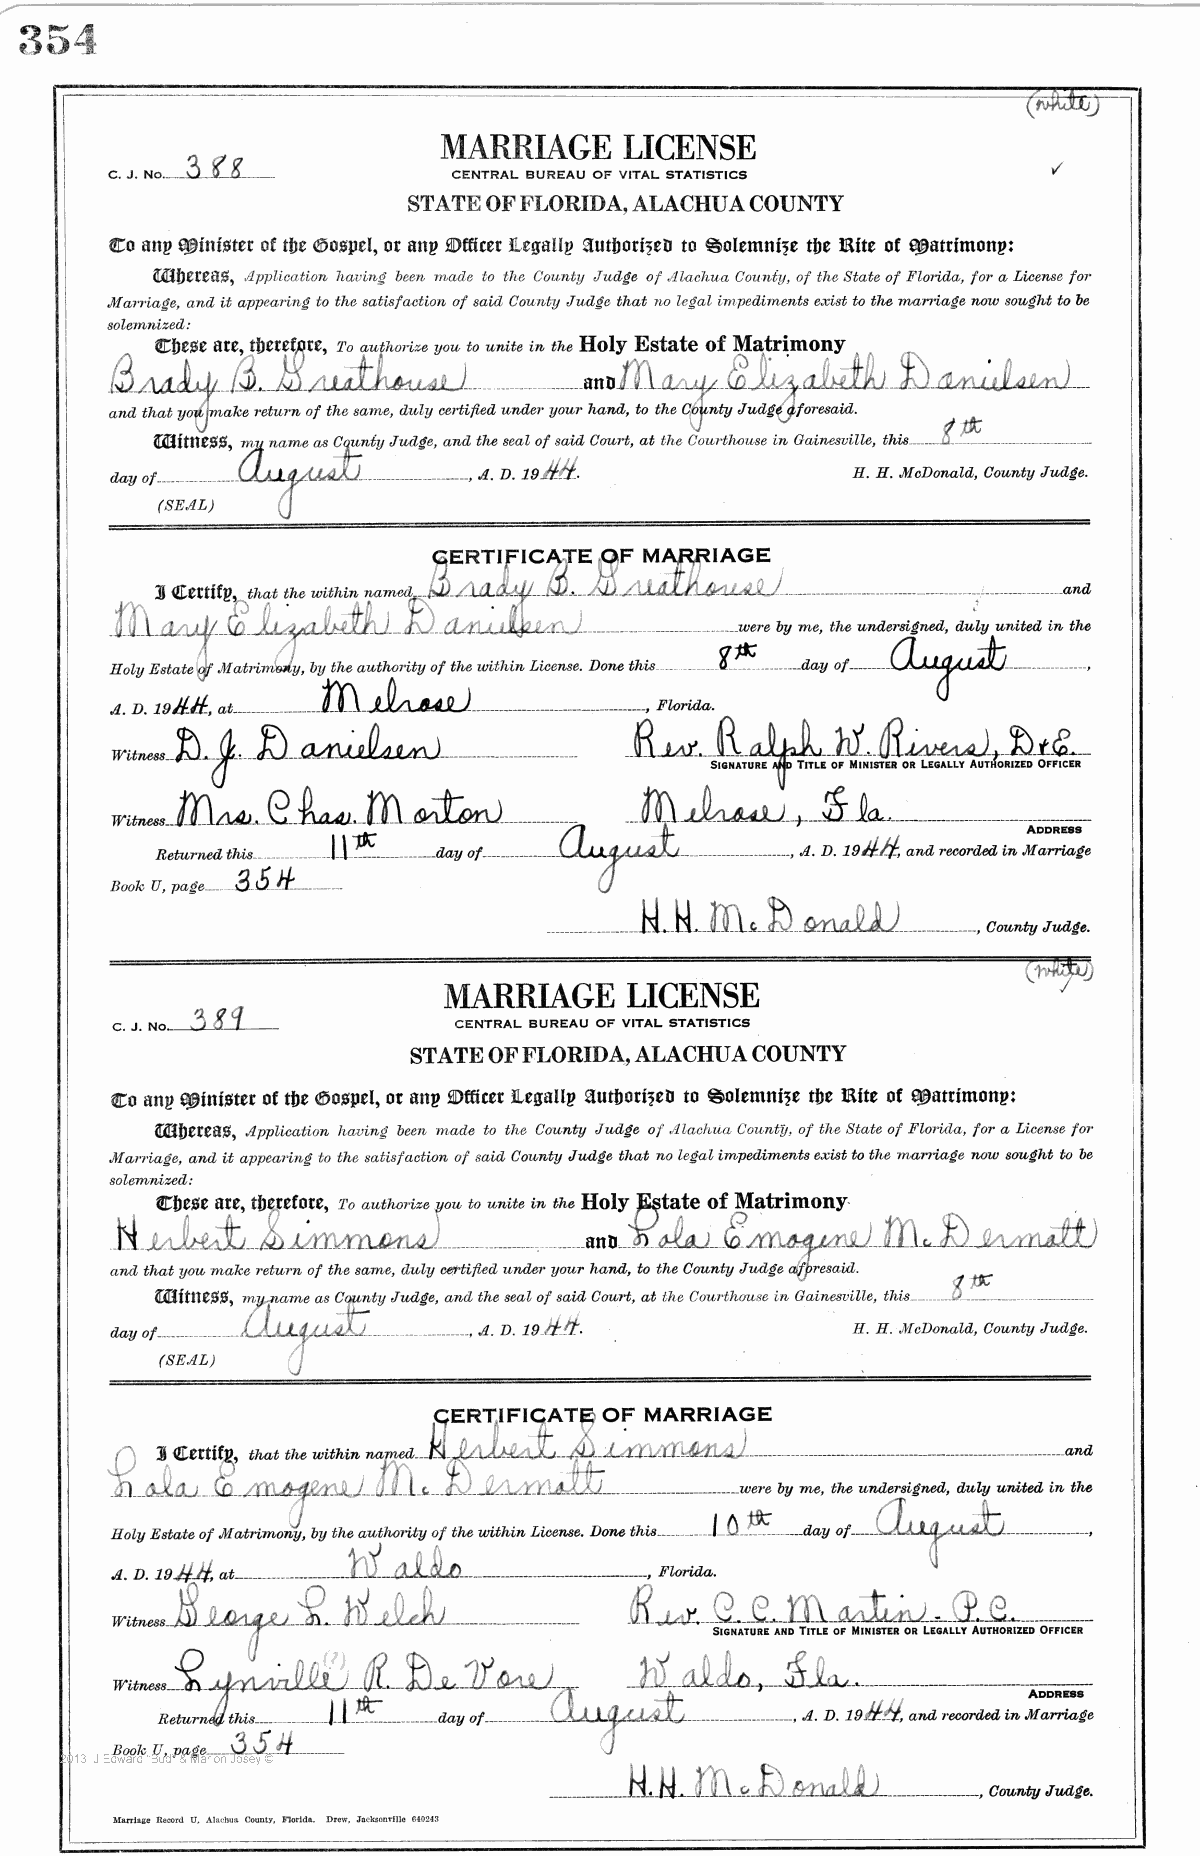 354
(white)
MARRIAGE LICENSE
C. J. No. 388 CENTRAL BUREAU OF VITAL STATISTICS ✓
STATE OF FLORIDA, ALACHUA COUNTY
To any Minister of the Gospel, or any Officer Legally Authorized to Solemnize the Rite of Matrimony:
Whereas, Application having been made to the County Judge of Alachua County, of the State of Florida, for a License for
Marriage, and it appearing to the satisfaction of said County Judge that no legal impediments exist to the marriage now sought to be
solemnized:
These are, therefore, To authorize you to unite in the Holy Estate of Matrimony
Brady B. Greathouse and Mary Elizabeth Danielsen
and that you make return of the same, duly certified under your hand, to the County Judge aforesaid.
Witness, my name as County Judge, and the seal of said Court, at the Courthouse in Gainesville, this 8th
day of August, A. D. 1944. H. H. McDonald, County Judge.
(SEAL)
CERTIFICATE OF MARRIAGE
I Certify, that the within named Brady B. Greathouse and
Mary Elizabeth Danielsen were by me, the undersigned, duly united in the
Holy Estate of Matrimony, by the authority of the within License. Done this 8th day of August,
A. D. 1944, at Melrose, Florida.
Witness D. J. Danielsen Rev. Ralph W. Rivers, D+E.
SIGNATURE AND TITLE OF MINISTER OR LEGALLY AUTHORIZED OFFICER
Witness Mrs. Chas. Morton Melrose, Fla.
ADDRESS
Returned this 11th day of August, A. D. 1944, and recorded in Marriage
Book U, page 354
H. H. McDonald, County Judge.
(white)
MARRIAGE LICENSE
C. J. No. 389 CENTRAL BUREAU OF VITAL STATISTICS
STATE OF FLORIDA, ALACHUA COUNTY
To any Minister of the Gospel, or any Officer Legally Authorized to Solemnize the Rite of Matrimony:
Whereas, Application having been made to the County Judge of Alachua County, of the State of Florida, for a License for
Marriage, and it appearing to the satisfaction of said County Judge that no legal impediments exist to the marriage now sought to be
solemnized:
These are, therefore, To authorize you to unite in the Holy Estate of Matrimony
Herbert Simmons and Lola Emogene McDermott
and that you make return of the same, duly certified under your hand, to the County Judge aforesaid.
Witness, my name as County Judge, and the seal of said Court, at the Courthouse in Gainesville, this 8th
day of August, A. D. 1944. H. H. McDonald, County Judge.
(SEAL)
CERTIFICATE OF MARRIAGE
I Certify, that the within named Herbert Simmons and
Lola Emogene McDermott were by me, the undersigned, duly united in the
Holy Estate of Matrimony, by the authority of the within License. Done this 10th day of August,
A. D. 1944, at Waldo, Florida.
Witness George L. Welch Rev. C. C. Martin - P.C.
SIGNATURE AND TITLE OF MINISTER OR LEGALLY AUTHORIZED OFFICER
Witness Lynville (?) R. DeVore Waldo, Fla.
ADDRESS
Returned this 11th day of August, A. D. 1944, and recorded in Marriage
Book U, page 354
2013 J Edward "Bud" & Marion Josey ©
H. H. McDonald, County Judge.
Marriage Record U, Alachua County, Florida. Drew, Jacksonville 640243